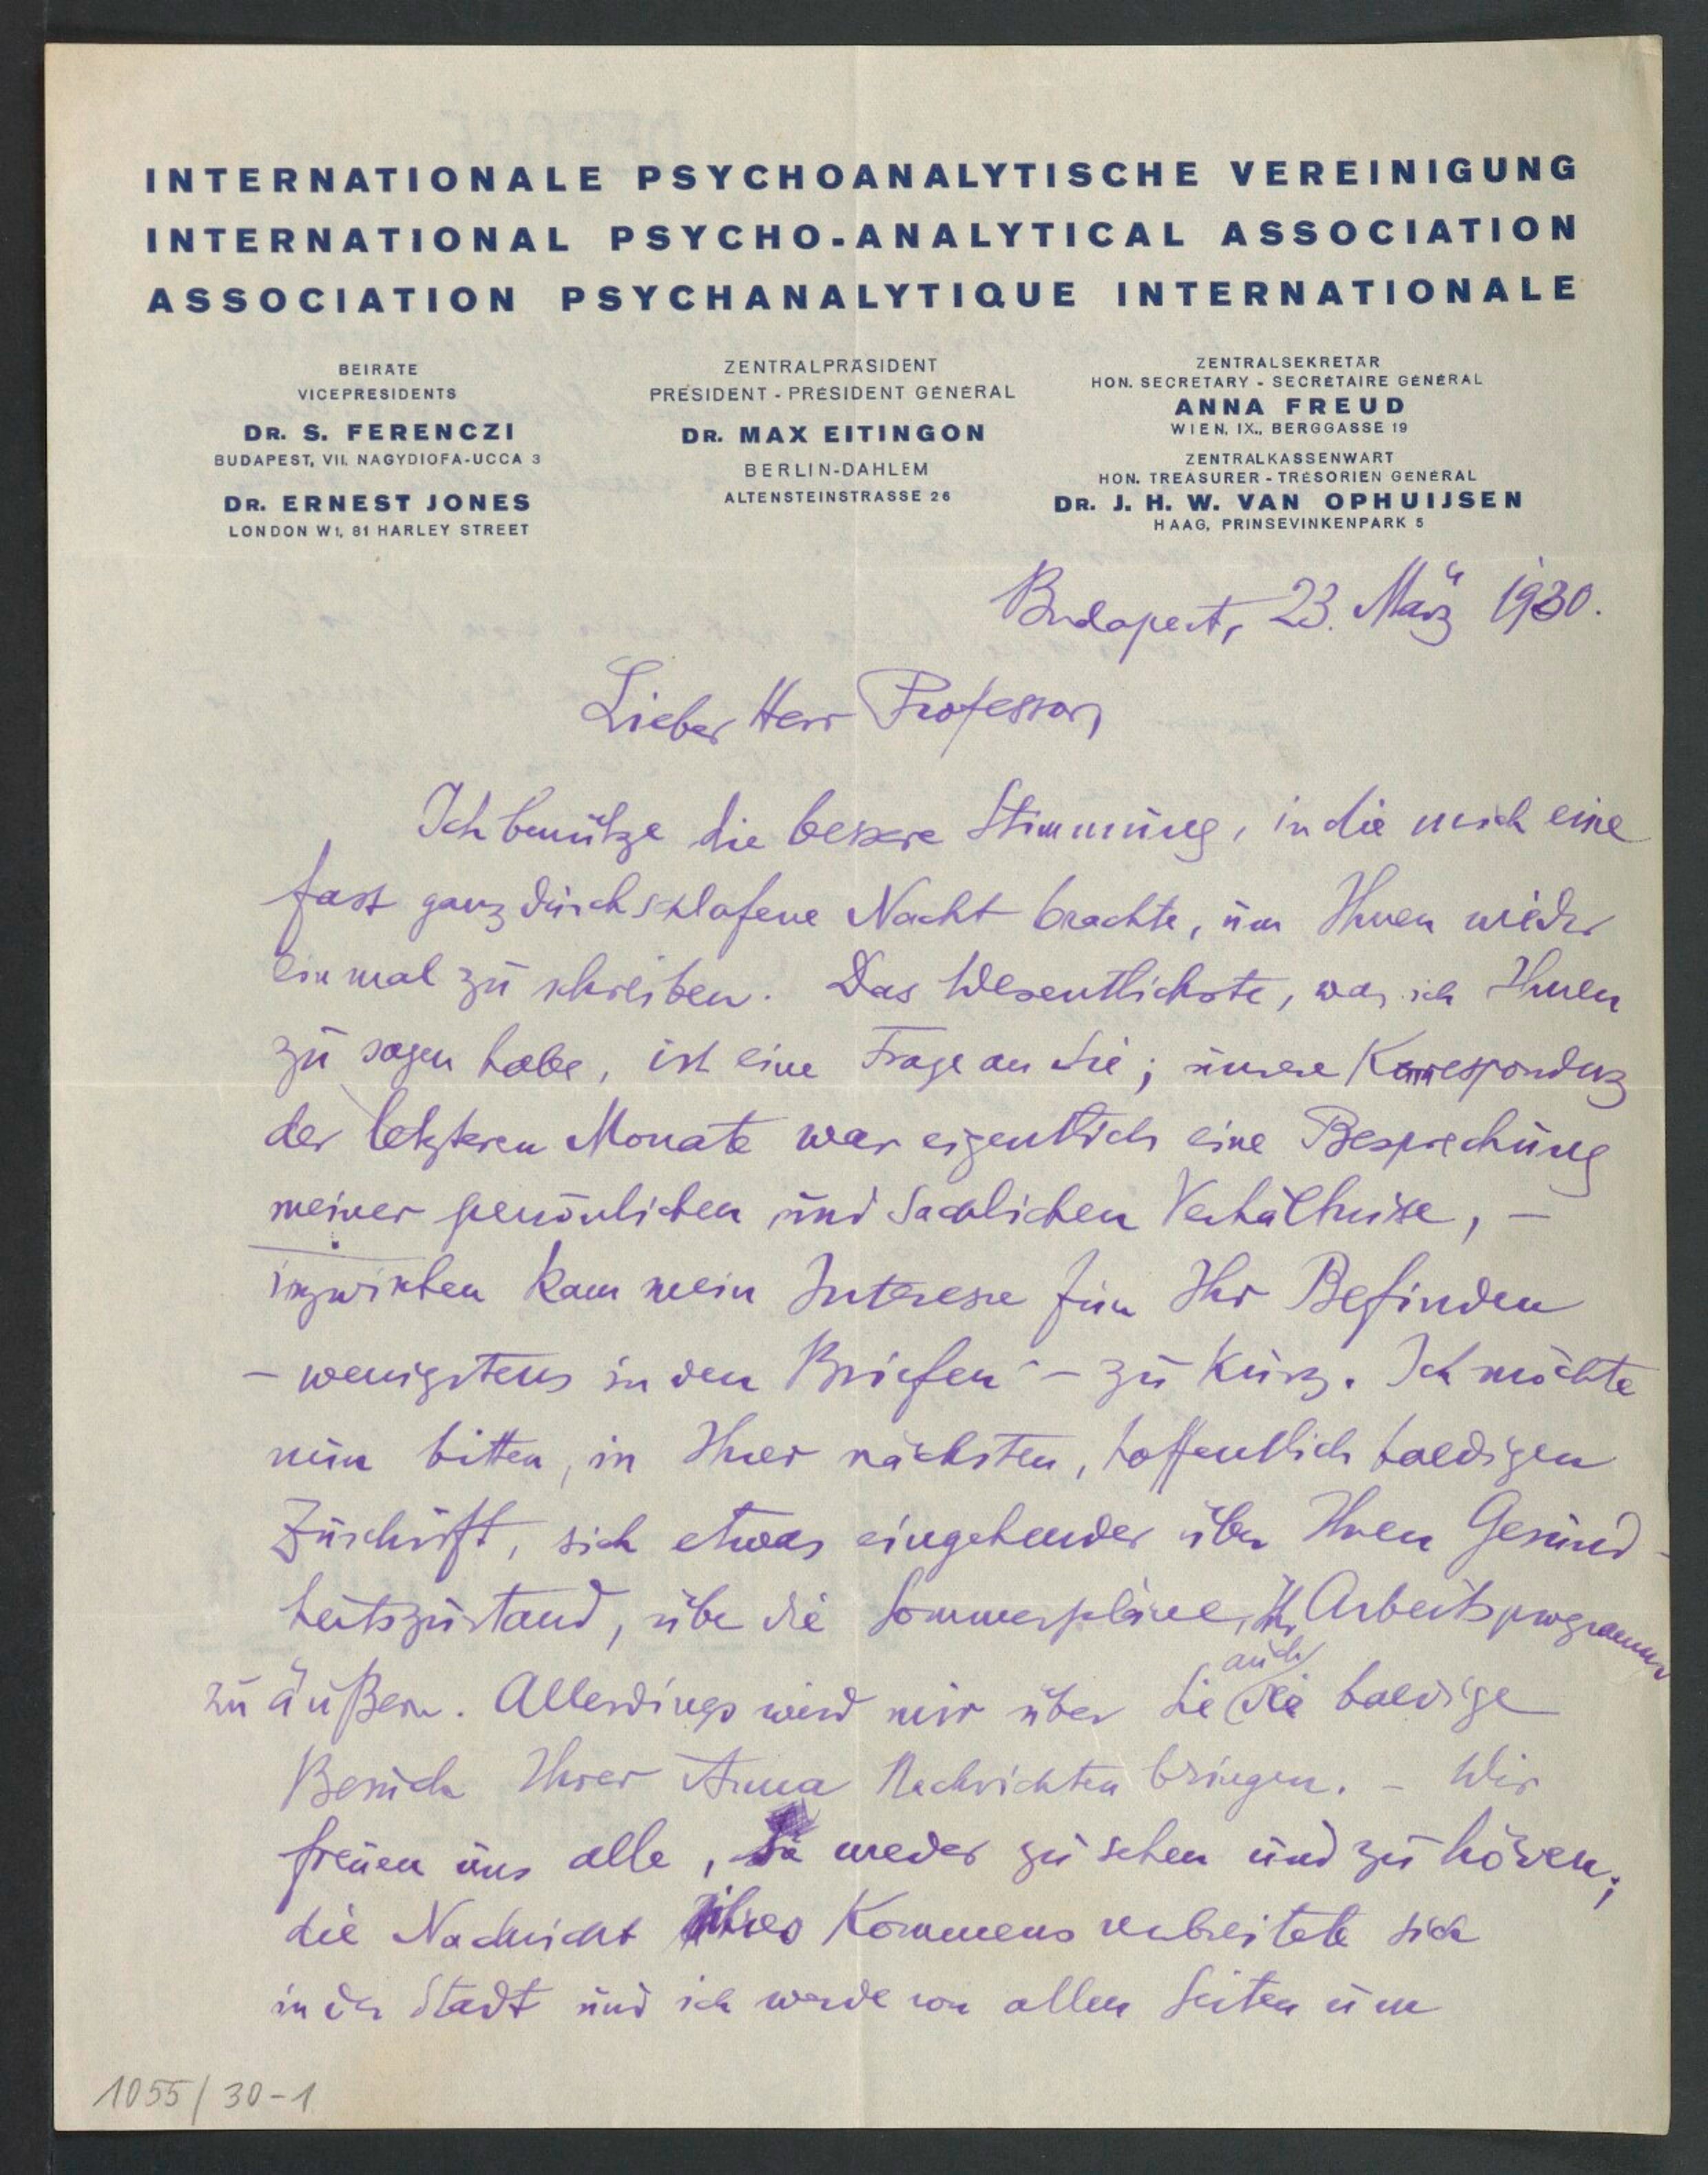 INTERNATIONALE PSYCHOANALYTISCHE VEREINIGUNG
INTERNATIONAL PSYCHO-ANALYTICAL ASSOCIATION
ASSOCIATION PSYCHANALYTIQUE INTERNATIONALE
BEIRÄTE
VICEPRESIDENTS
DR. S. FERENCZI
BUDAPEST, VII. NAGYDIOFA-UCCA 3
DR. ERNEST JONES
LONDON W1, 81 HARLEY STREET
ZENTRALPRÄSIDENT
PRESIDENT - PRÉSIDENT GÉNÉRAL
DR. MAX EITINGON
BERLIN-DAHLEM
ALTENSTEINSTRASSE 26
ZENTRALSEKRETÄR
HON. SECRETARY - SECRÉTAIRE GÉNÉRAL
ANNA FREUD
WIEN, IX., BERGGASSE 19
ZENTRALKASSENWART
HON. TREASURER - TRÉSORIEN GÉNÉRAL
DR. J. H. W. VAN OPHUIJSEN
HAAG, PRINSEVINKENPARK 5
Budapest, 23. März 1930.
Lieber Herr Professor,
Ich benütze die bessere Stimmung, in die mich eine
fast ganz durchschlafene Nacht brachte, um Ihnen wieder
einmal zu schreiben. Das Wesentlichste, was ich Ihnen
zu sagen habe, ist eine Frage an Sie; unsere Korrespondenz
der letzteren Monate war eigentlich eine Besprechung
meiner persönlichen und sachlichen Verhältnisse, –
inzwischen kam mein Interesse für Ihr Befinden
– wenigstens in den Briefen – zu kurz. Ich möchte
nun bitten, in Ihrer nächsten, hoffentlich baldigen
Zuschrift, sich etwas eingehender über Ihren Gesund-
heitszustand, über die Sommerpläne, Ihr Arbeitsprogramm
zu äußern. Allerdings wird mir über Sie auch die baldige
Besuch Ihrer Anna Nachrichten bringen. – Wir
freuen uns alle, sie wieder zu sehen und zu hören;
die Nachricht ihres Kommens verbreitete sich
in der Stadt und ich werde von allen Seiten um
1055/30-1